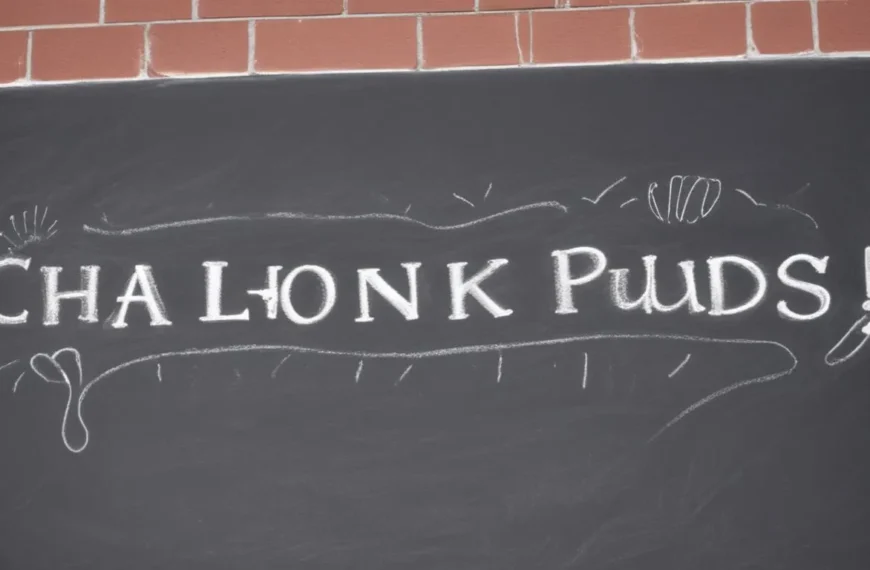 CHALHONK PUUDS!